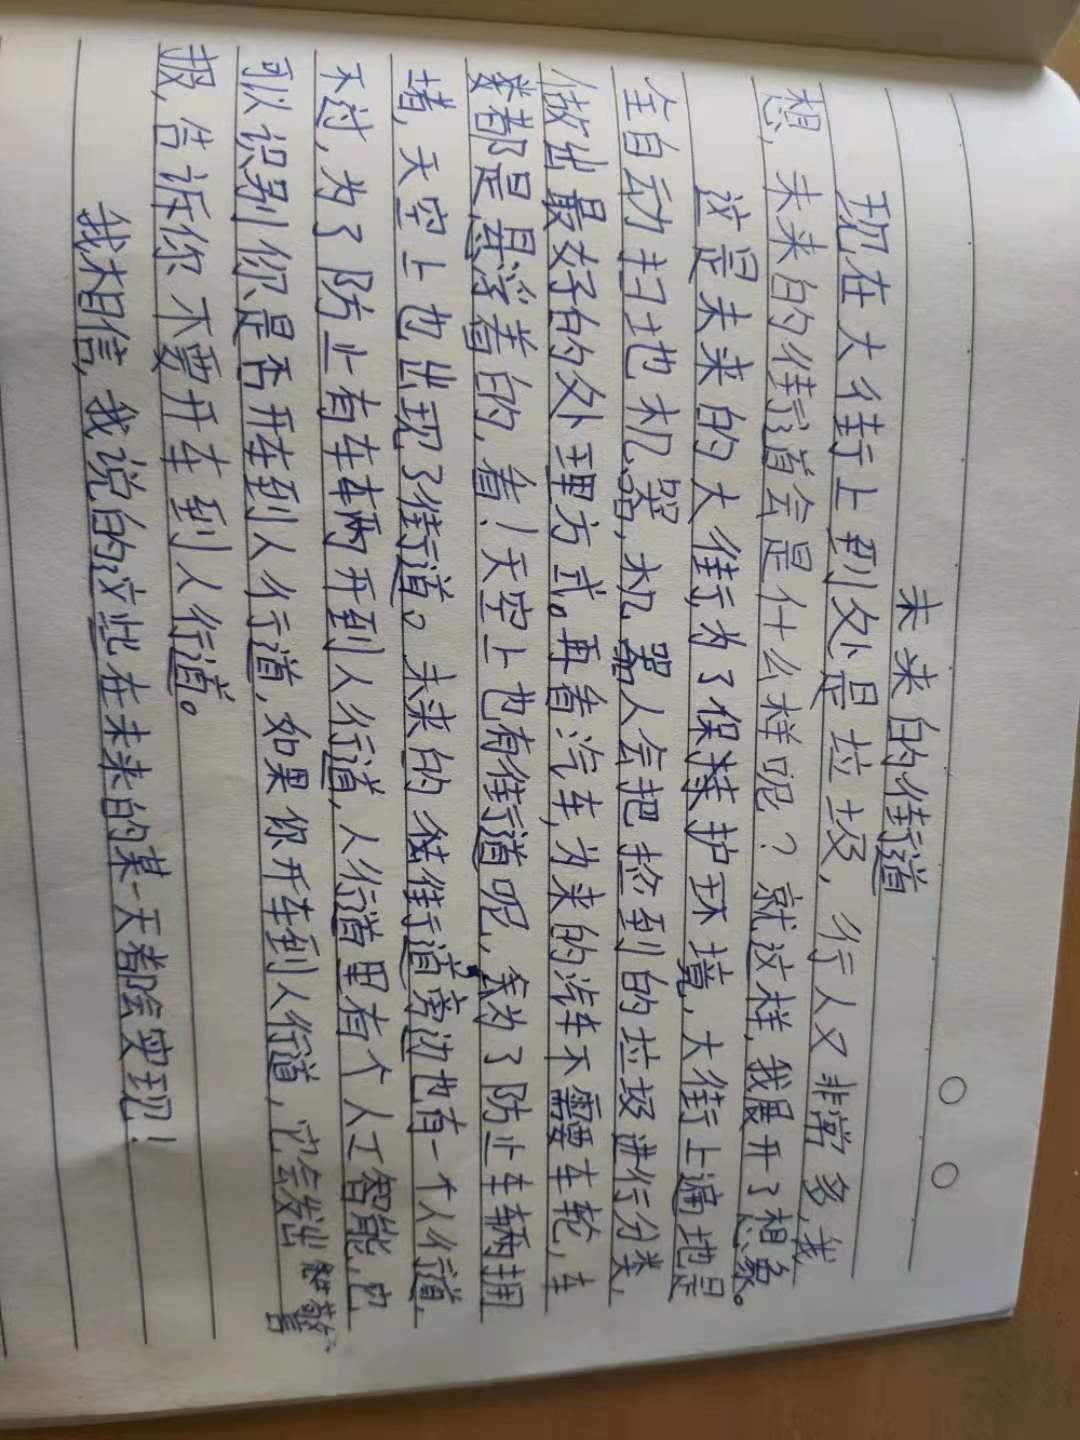 未来的街道
现在大街上到处是垃圾,行人又非常多,我
想,未来的街道会是什么样呢?就这样,我展开了想象。
这是未来的大街,为了保持护环境,大街上遍地是
全自动扫地机器,机器人会把捡到的垃圾进行分类,
做出最好的处理方式。再看汽车,为来的汽车不需要车轮,车
都是悬浮着的,看!天空上也有街道呢,为了防止车辆拥
堵,天空上也出现了街道。未来的街道旁边也有一个人行道,
不过,为了防止有车辆开到人行道,人行道里有个人工智能,它
可以识别你是否开车到人行道,如果你开车到人行道,它会发出警
报,告诉你不要开车到人行道。
我相信,我说的这些在未来的某一天都会实现!